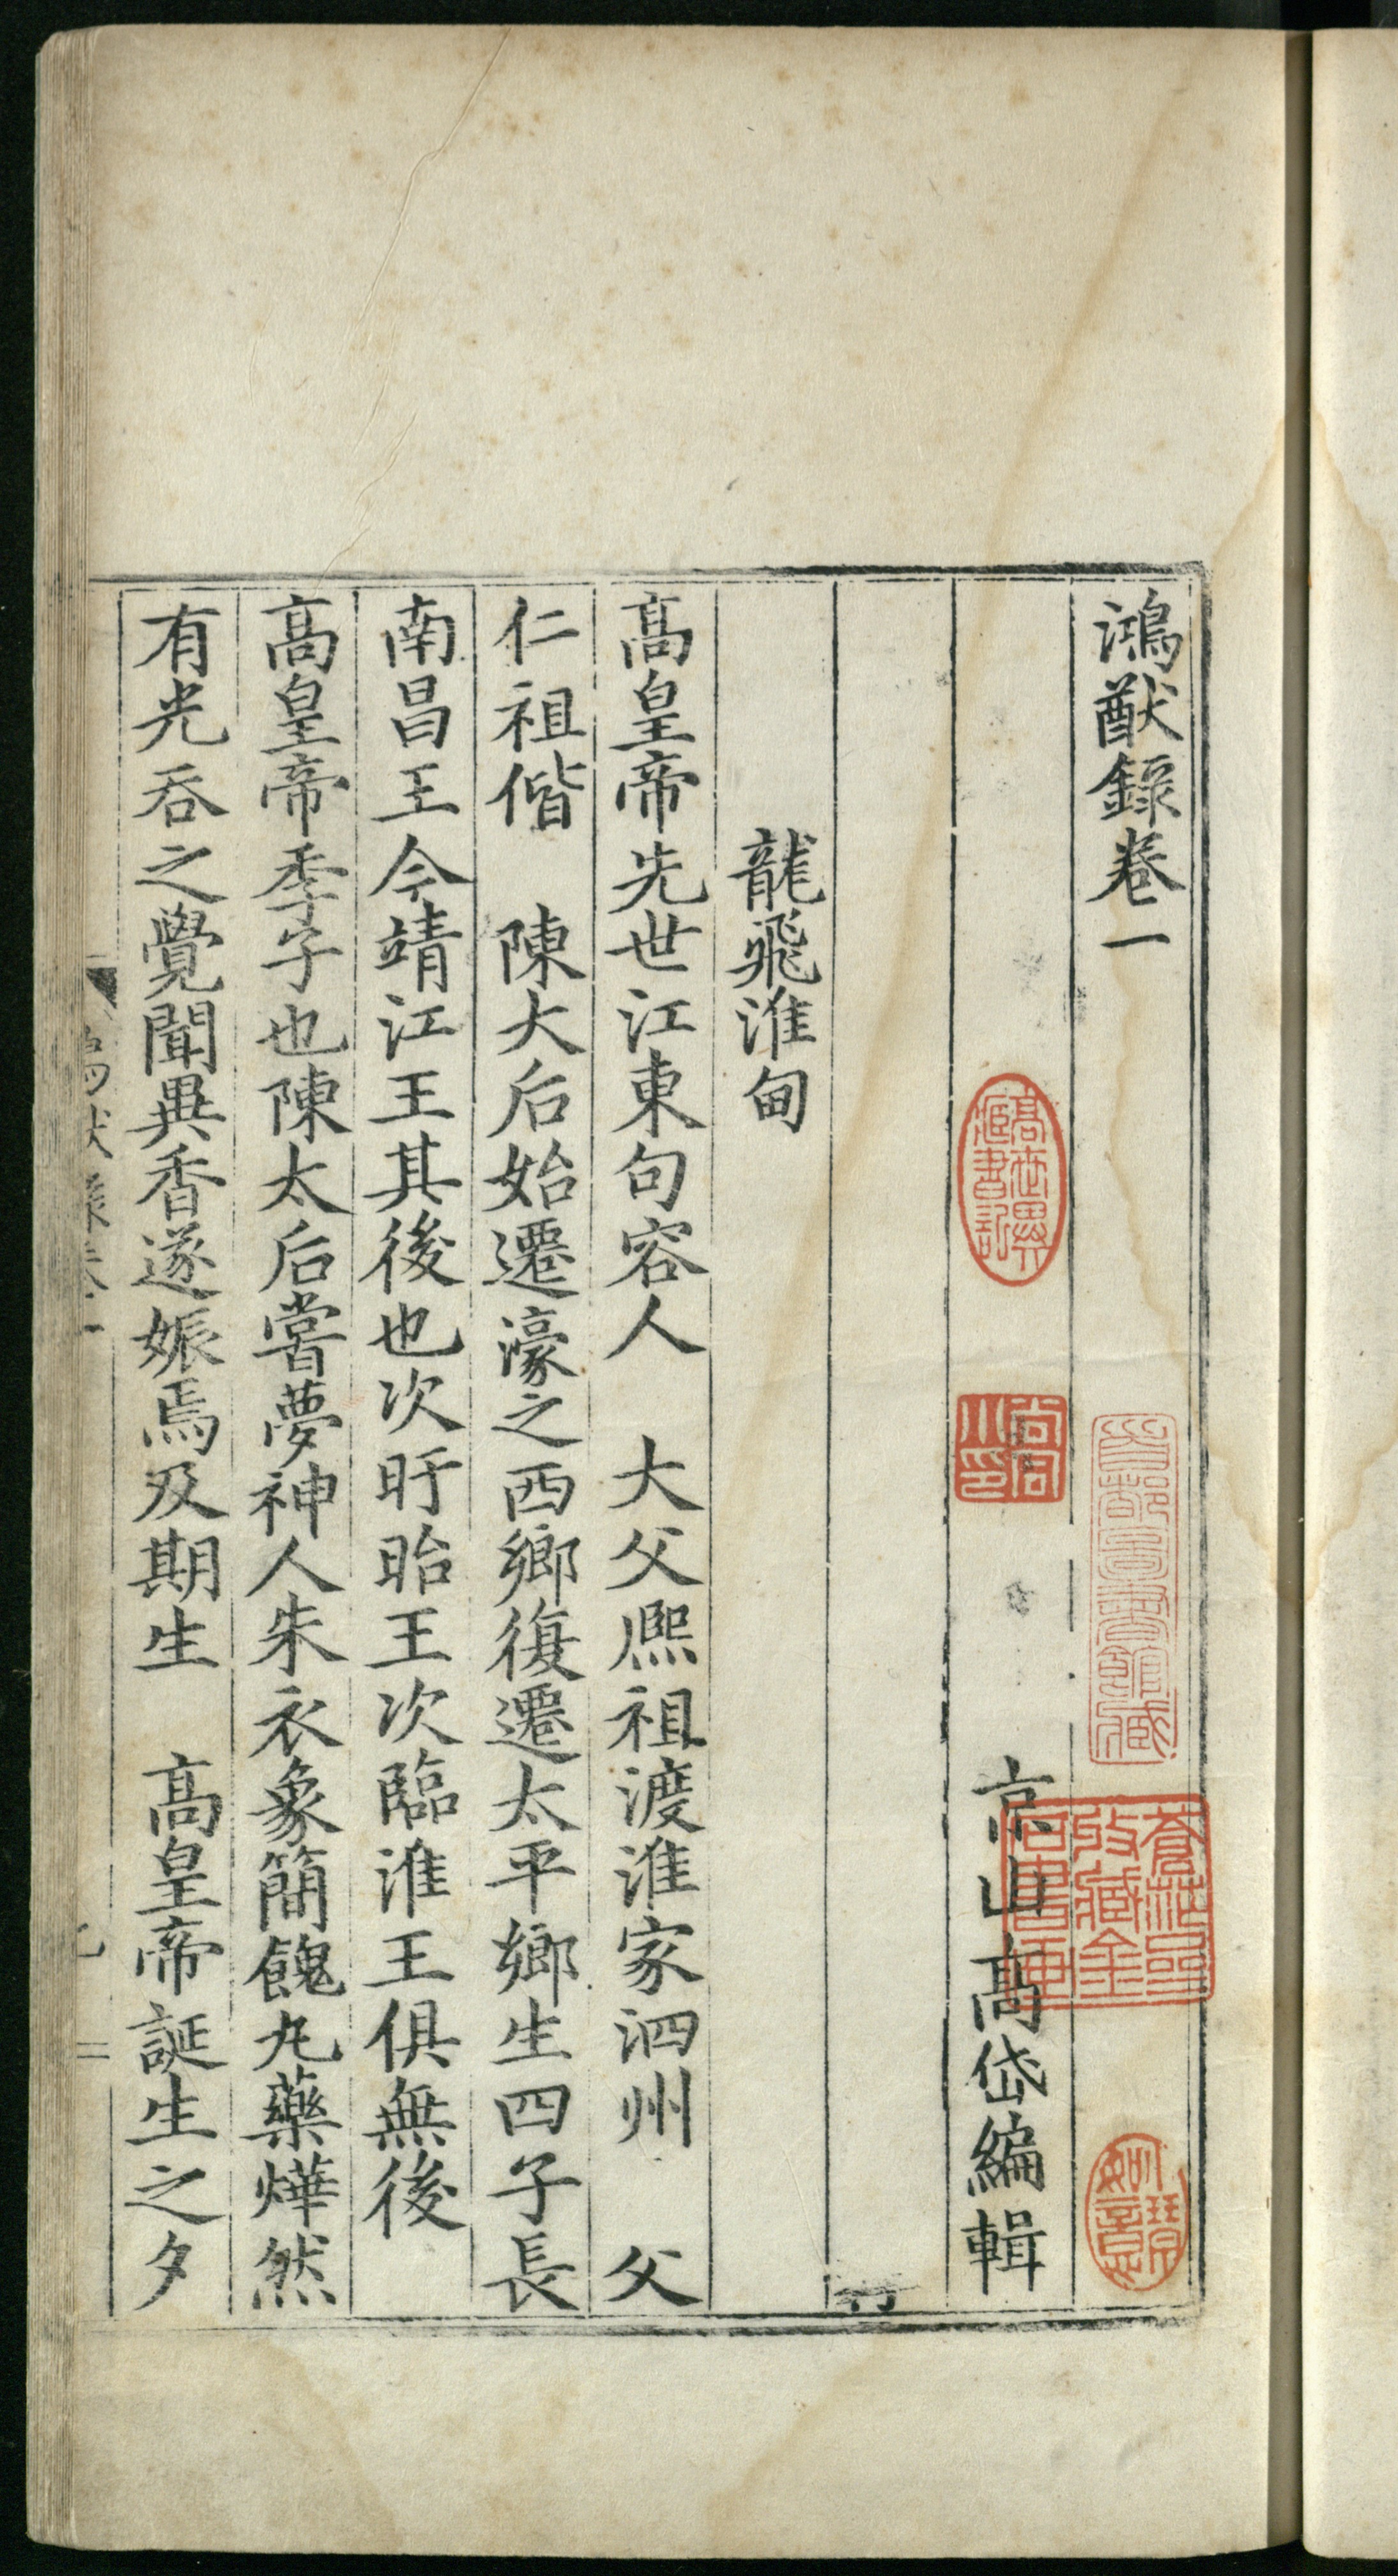 鴻猷錄卷一
京山高岱編輯
龍飛淮甸
高皇帝先世江東句容人　大父熈祖渡淮家泗州　父
仁祖偕　陳大后始遷濠之西鄉復遷太平鄉生四子長
南昌王今靖江王其後也次盱眙王次臨淮王俱無後
高皇帝季子也陳太后嘗夢神人朱衣象簡餽丸藥燁然
有光吞之覺聞異香遂娠焉及期生　高皇帝誕生之夕
首都圖書館藏
高世異
尚同